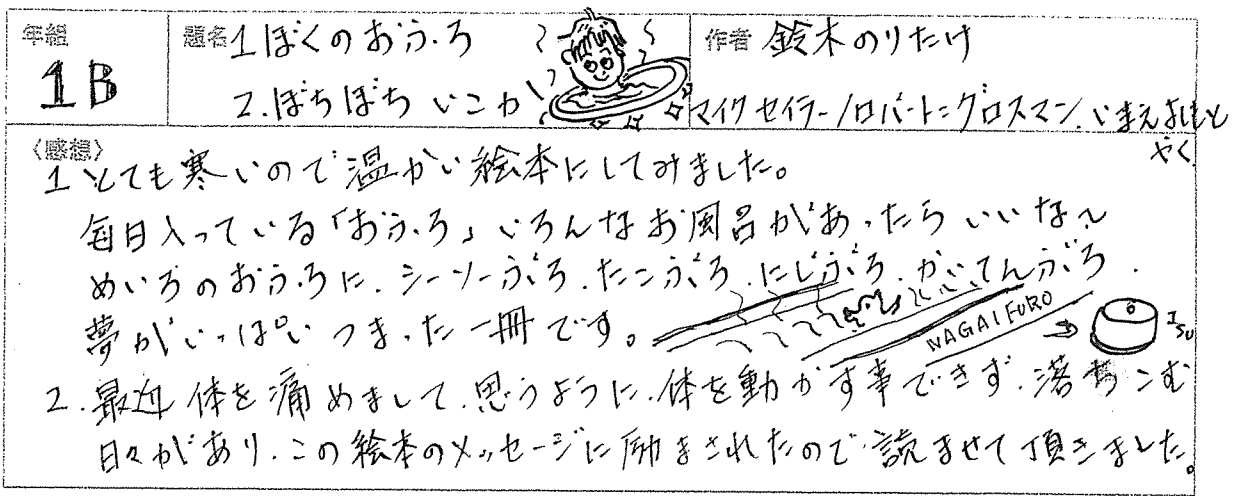 年組
1B
題名 1 ぼくのおふろ
2. ぼちぼち いこか
作者 鈴木のりたけ
マイク セイラー/ロバート=グロスマン. いまえよしとも
やく
〈感想〉
1 とても寒いので温かい絵本にしてみました。
毎日入っている「おふろ」いろんなお風呂があったらいいな〜
めいろのおふろに、シーソーぶろ、たこぶろ、にじぶろ、かいてんぶろ、
夢がいっぱいつまった一冊です。
NAGAIFURO
ISU
2. 最近 体を痛めまして、思うように、体を動かす事できず、落ちこむ
日々があり、この絵本のメッセージに励まされたので読ませて頂きました。